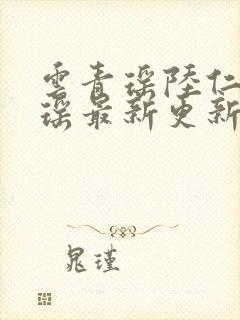 雲青瑶陸仁
瑶最新更新
晁瑾